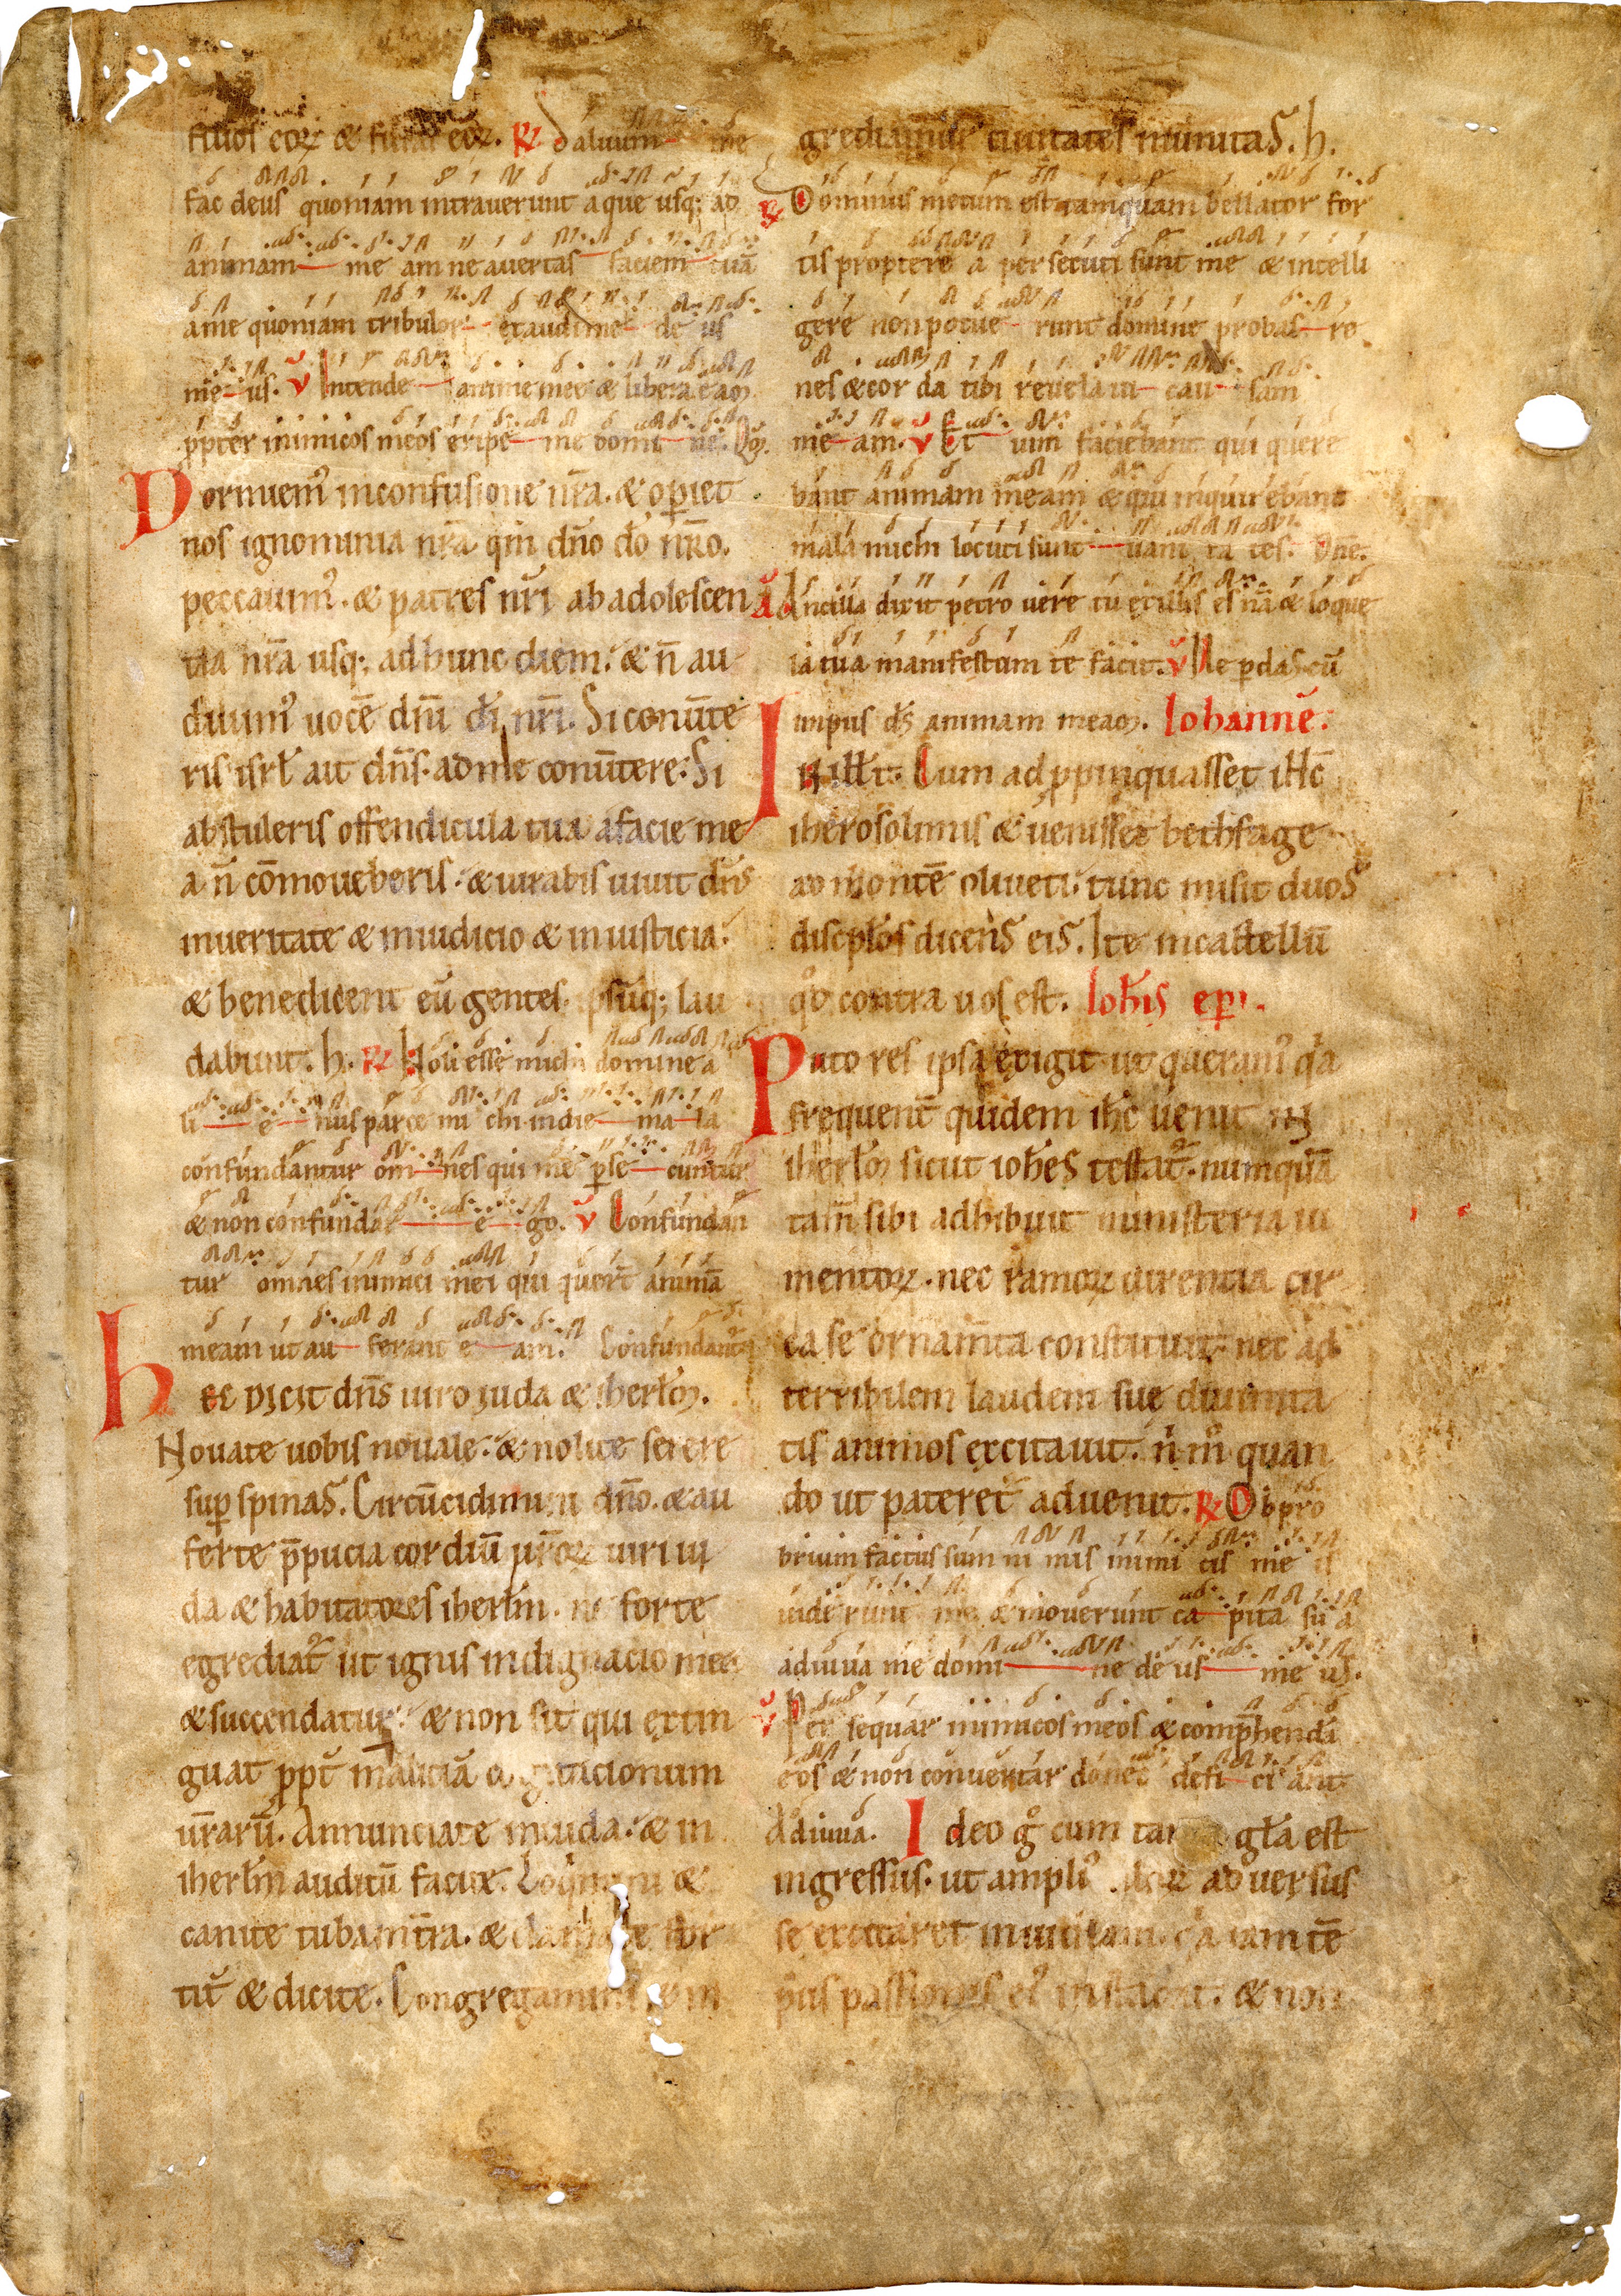 filios eoꝝ & filias eoꝝ. ℟ Saluum me
fac deus quoniam intrauerunt aque usq; ad
animam me am ne auertas faciem tuā
a me quoniam tribulor exaudi me de us
me us. ℣ Intende anime mee & libera eaꝫ
ꝓpter inimicos meos eripe me domi ne. Qꝫ.
Dormiemꝰ inconfusione nr̄a. & oꝑiet
nos ignominia nr̄a qm̄ dn̄o dō nr̄o.
peccauimꝰ. & patres nr̄i ab adolescen
tia nr̄a usq; ad hunc diem. & n̄ au
diuimꝰ uocē dn̄i dī nr̄i. Si conūte
ris isrl̄ ait dn̄s. ad me conūtere. Si
abstuleris offendicula tua afacie me
a n̄ cōmoueberis. & iurabis uiuit dn̄s
inueritate & iniudicio & iniusticia.
& benedicent eū gentes ipsūq; lau
dabunt. h. ℟ Noli esse michi domine a
li e nus parce mi chi indie ma la
confundantur om nes qui me ꝑse cuntur
& non confundar e go. ℣ Confundan
tur omnes inimici mei qui quer̄t animā
meam ut au ferant e am. Confundantꝰ
hec dicit dn̄s uiro iuda & iherlꝫ.
Nouate uobis nouale. & nolite serere
suꝑ spinas. Circūcidimini dn̄o. & au
ferte p̄pucia cordiū ur̄oꝝ uiri iu
da & habitatores iherlm̄. ne forte
egrediatᷣ ut ignis indignacio mea
& succendatur. & non sit qui extin
guat ꝓpt̄ maliciā cogitacionum
ur̄arū. Annunciate iniuda. & in
iherlm̄ auditū facite. Loqimini &
canite tuba int̄ra. & clamate for
tit̄ & dicite. Congregamini & in
grediamur ciuitates munitas. h.
℟ Dominus mecum est tamquam bellator for
tis proptere a persecuti sunt me & intelli
gere non potue runt domine probas re
nes & cor da tibi reuelaui cau sam
me am. ℣ Et uim faciebant qui quere
bant animam meam & qui inquirebant
mala michi locuti sunt uani ta tes. Dn̄e.
Ancilla dixit petro uere tu ex illis es nā & loque
la tua manifestum te facit. ℣ Ne ꝑdas cū
impiis ds̄ animam meaꝫ. Iohannē.
In illt̄. Cum ad ꝓpinquasset ihc̄
iherosolimis & uenisset bethfage
ad montē oliueti. tunc misit duos
discipl̄os dicens eis. Ite incastellū
qͦd contra uos est. Ioh̄is epī.
Puto res ipsa exigit ut queramꝰ qͣa
frequent̄ quidem ihc̄ uenit in
iherlꝫ sicut ioh̄es testatᷣ. numquā
tam̄ sibi adhibuit ministeria iu
mentoꝝ. nec ramoꝝ uirentia cir
ca se ornam̄ta constituit. nec ad
terribilem laudem suę diuinita
tis animos excitauit. n̄ mͦ quan
do ut pateretᷣ aduenit. ℟ Obpro
brium factus sum ni mis inimi cis me is
uiderunt me & mouerunt ca pita su a
adiuua me domi ne de us me us.
℣ Per sequar inimicos meos & comp̄hendā
eos & non conuertar donec defi ci ant
Adiuua. Ideo gͦ cum tanta gl̄a est
ingressus. ut ampliꝰ illoꝝ aduersus
se excitaret inuidiam. qͣa iam tē
pus passionis eiꝰ instabat. & non